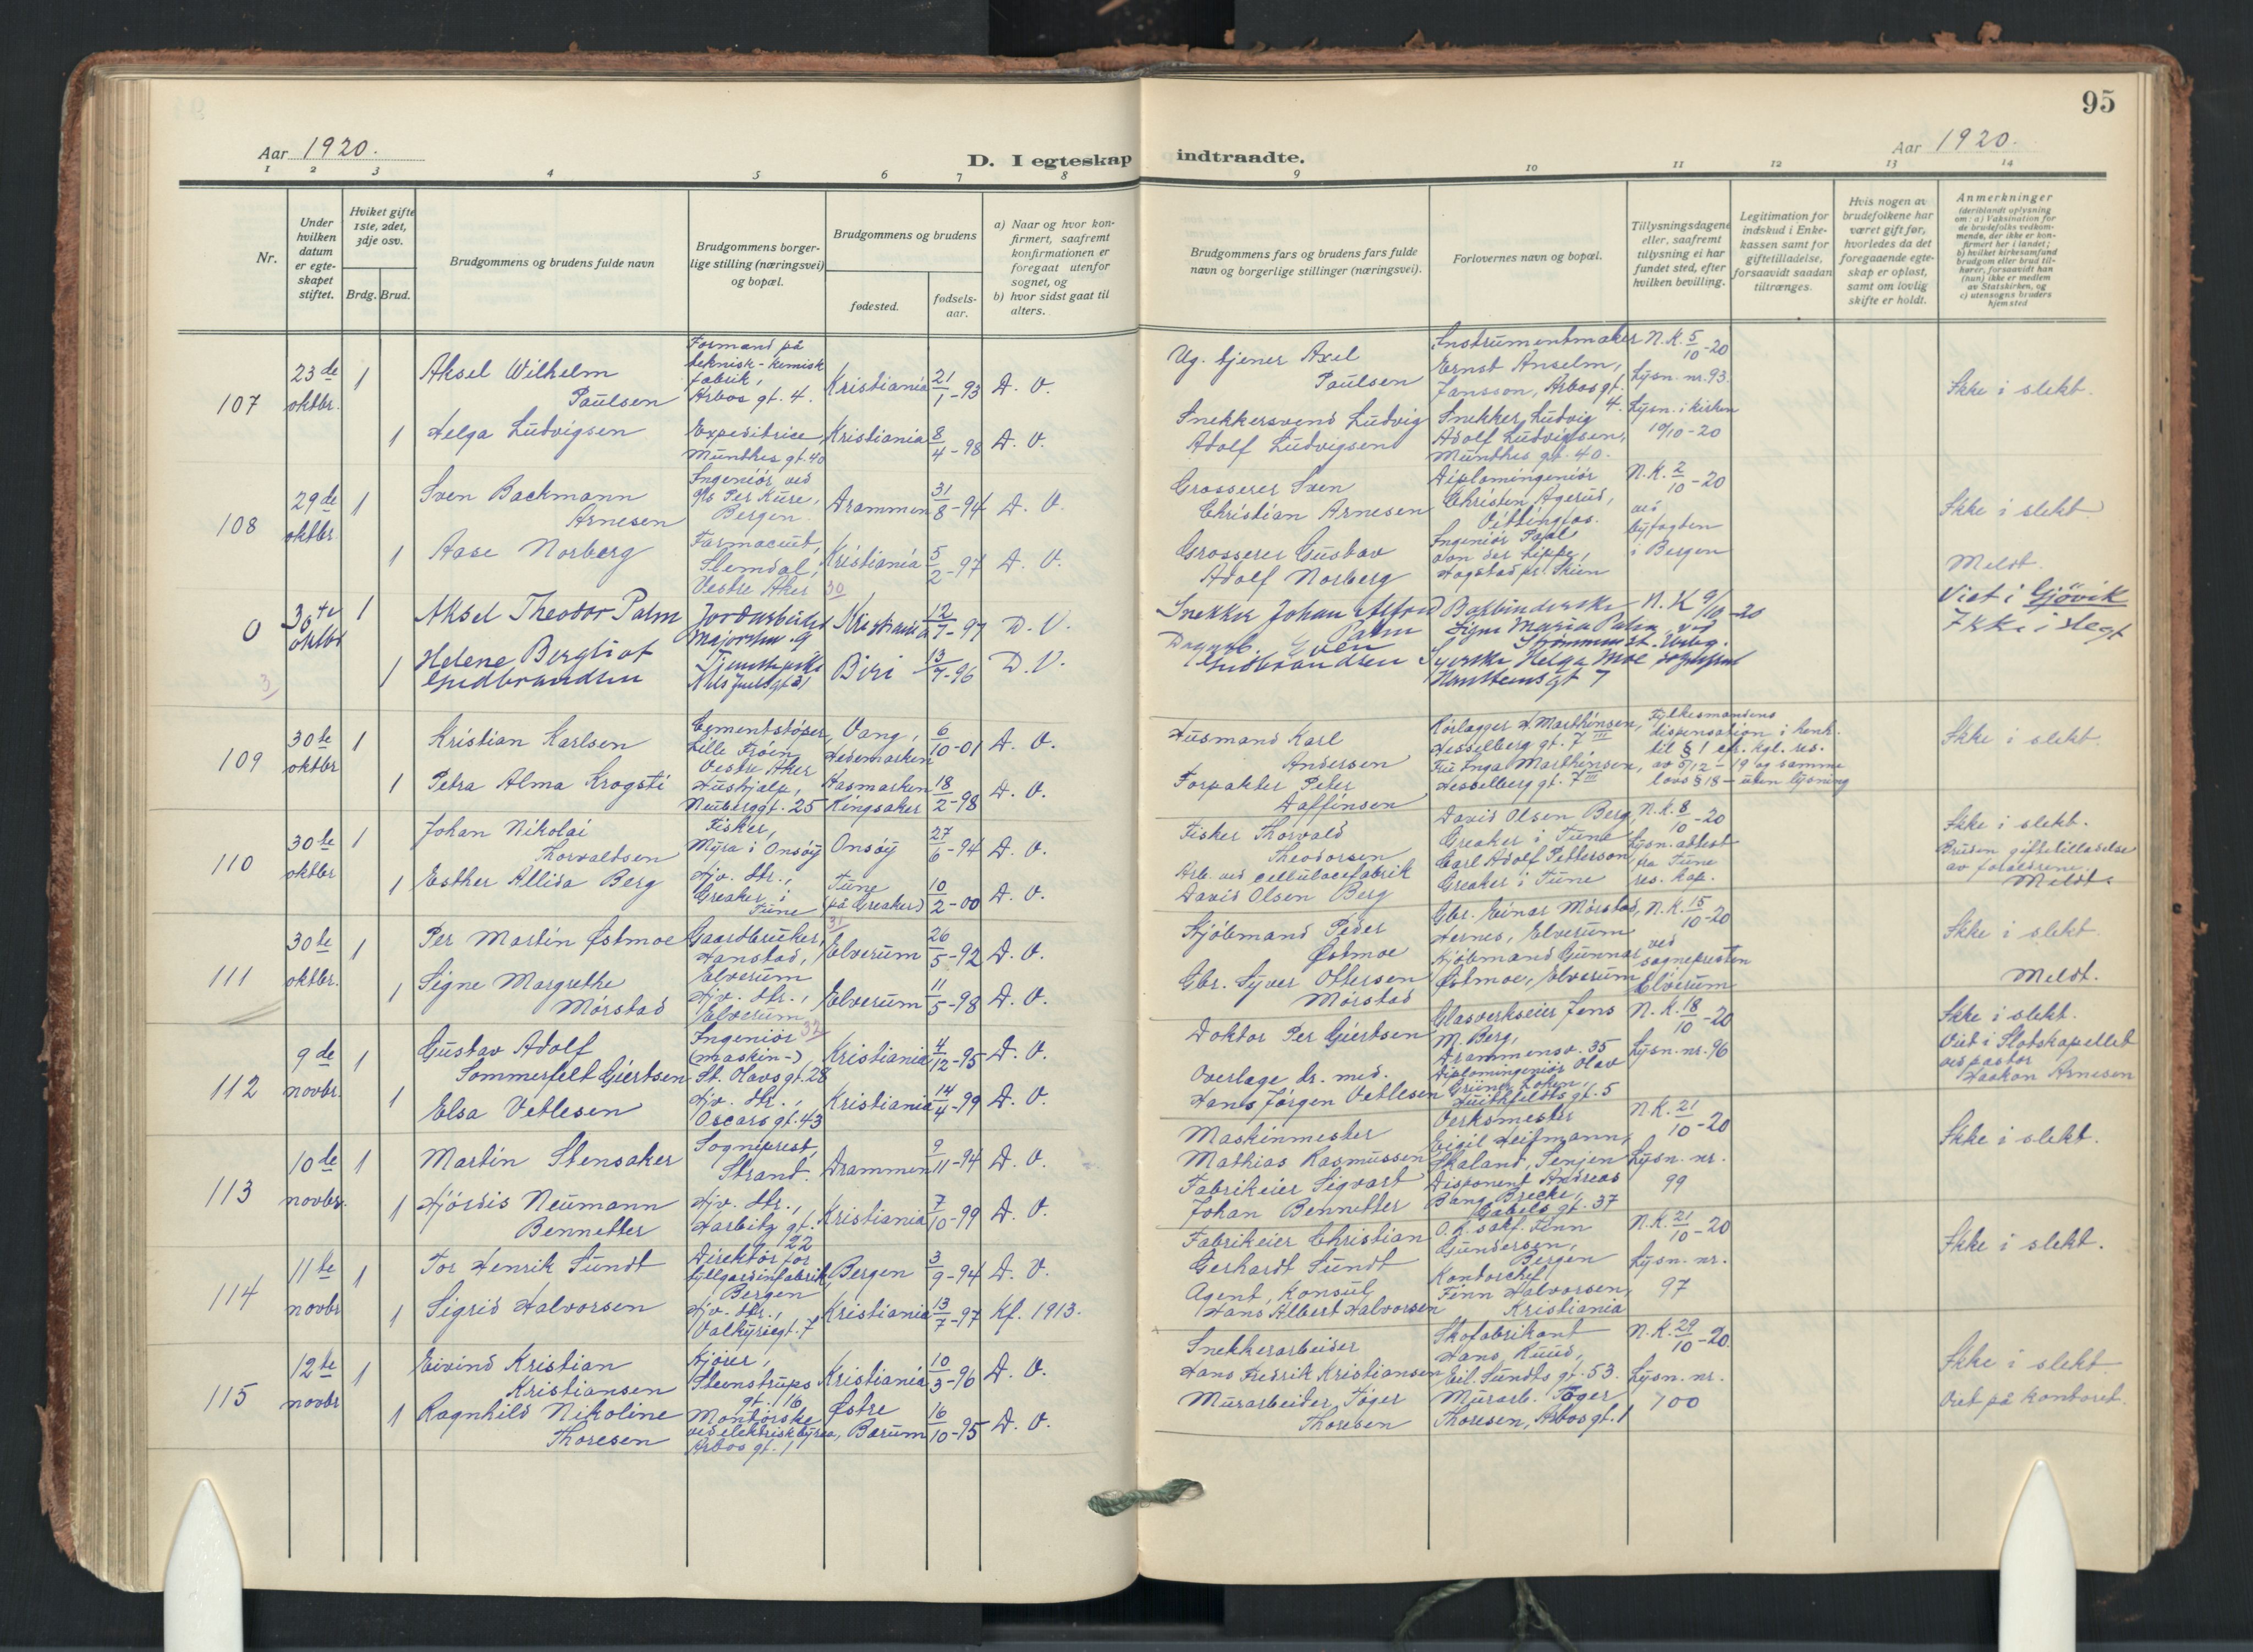 95
Aar 1920.
D. I egteskap indtraadte.
Aar 1920.
1 2 3 4 5 6 7 8 9 10 11 12 13 14
Nr.
Under hvilken datum er egteskapet stiftet.
Hviket gifte 1ste, 2det, 3dje osv.
Brdg. Brud.
Brudgommens og brudens fulde navn
Brudgommens borgerlige stilling (næringsvei) og bopæl.
Brudgommens og brudens
fødested.
fødselsaar.
a) Naar og hvor konfirmert, saafremt konfirmationen er foregaat utenfor sognet, og
b) hvor sidst gaat til alters.
Brudgommens fars og brudens fars fulde navn og borgerlige stillinger (næringsvei).
Forlovernes navn og bopæl.
Tillysningsdagene eller, saafremt tillysning ei har fundet sted, efter hvilken bevilling.
Legitimation for indskud i Enkekassen samt for giftetilladelse, forsaavidt saadan tiltrænges.
Hvis nogen av brudefolkene har været gift før, hvorledes da det foregaaende egteskap er opløst, samt om lovlig skifte er holdt.
Anmerkninger (deriblandt oplysning om: a) Vaksination for de brudefolks vedkommende, der ikke er konfirmert her i landet; b) hvilket kirkesamfund brudgom eller brud tilhører, forsaavidt han (hun) ikke er medlem av Statskirken, og c) utensogns bruders hjemsted
107 23de oktbr. 1 Aksel Wilhelm Paulsen Formand på teknisk-kemisk fabrik, Arbos gt. 4. Kristiania 21/1-93 D. V. Ug. tjener Axel Paulsen Instrumentmaker Ernst Anselm, Jansson, Arbos gt. 4. N.K. 5/10-20 Lysn. nr. 93. Ikke i slekt.
1 Helga Ludvigsen Expeditrice, Munthes gt. 40 Kristiania 8/4-98 D. V. Snekkersvend Ludvig Adolf Ludvigsen Snekker Ludvig Adolf Ludvigsen, Munthes gt. 40. Lysn. i kirken 10/10-20
108 29de oktbr 1 Sven Backmann Arnesen Ingeniør ved Per Kure, Bergen. Drammen 31/8-94 D. V. Grosserer Sven Christian Arnesen Diplomingeniør Christen Agerud, Vittingfos. N.K. 2/10-20 ved byfogden i Bergen Ikke i slekt
1 Aase Norberg Farmaceut, Slemdal, Vestre Aker 30 Kristiania 5/2-97 D. V. Grosserer Gustav Adolf Norberg Ingeniør Paal von der Lippe, Hogstad pr. Skien Meldt.
0 30te oktbr 1 Aksel Theodor Palm Jordarbeider Majorstuv. 9 Kristiania 12/7-97 D.V. Snekker Johan Alfred Palm Bokbinderske Signe Maria Palm N.K. 9/10-20 Viet i Gjøvik Ikke i slegt
3 1 Helene Bergliot Gudbrandsen Tjenestepike Niels Juels gt 31 Biri 13/7-96 D.V. Dagarb. Even Gudbrandsen Syerske Helga Moe Hansteens gt 7
109 30te oktbr 1 Kristian Karlsen Cementstøper, Lille Frøen Vestre Aker Vang, Hedemarken 6/10-01 D. V. Husmand Karl Andersen Rørlægger H. Marthinsen, Hesselberg gt. 7 III Fylkesmandens dispensation i henh. til § 1 ck. kgl. res. av 5/12-19 og samme lovs § 18 - uten lysning Ikke i slekt.
1 Petra Alma Krogsti Hushjælp, Neuberggt. 25 Aasmarken Ringsaker 18/2-98 D. V. Forpakter Peter Daffinsen Fru Inga Marthinsen, Hesselberg gt. 7 III
110 30te oktbr 1 Johan Nikolai Thorvaldsen Fisker, Myra i Onsøy Onsøy 27/6-94 D. V. Fisker Thorvald Theodorsen David Olsen Berg, Greaker i Tune N.K. 8/10-20 Lysn. attest fra Tune res. kap. Ikke i slekt. Bruden giftetilladelse av forældrene. Meldt.
1 Esther Allida Berg Hjv. dtr., Greaker i Tune Tune (på Greaker) 10/2-00 D. V. Arb. ved cellulosefabrik David Olsen Berg Carl Adolf Petterson, Greaker i Tune
111 30te oktbr. 1 Per Martin Østmoe Gaardbruker, Hanstad, Elverum 31 Elverum 26/5-92 D. V. Kjøbmand Peder Østmoe Gbr. Einar Mørstad, Hernes, Elverum N.K. 15/10-20 ved sognepresten Elverum Ikke i slekt.
1 Signe Margrethe Mørstad Hjv. dtr., Elverum 32 Elverum 11/5-98 D. V. Gbr. Syver Ottersen Mørstad Kjøbmand Gunnar Østmoe, Elverum Meldt.
112 9de novbr. 1 Gustav Adolf Sommerfelt Giertsen Ingeniør (maskin-) St. Olavs gt. 28 Kristiania 4/12-95 D. V. Doktor Per Giertsen Glasverkseier Jens M. Berg, Drammensv. 35 N.K. 18/10-20 Lysn. nr. 96 Ikke i slekt. Viet i Slotskapellet ved pastor Haakon Arnesen
1 Elsa Vetlesen Hjv. dtr., Oscars gt. 43 Kristiania 14/4-99 D. V. Overlæge dr. med. Hans Jørgen Vetlesen Diplomingeniør Olav Grüner Løken, Huitfeldts gt. 5
113 10de novbr. 1 Martin Stensaker Sogneprest, Strand. Drammen 9/11-94 D. V. Maskinmester Mathias Rasmussen Verksmester Eigil Heitmann, Skaland, Senjen N.K. 21/10-20 Lysn. nr. 99 Ikke i slekt.
1 Hjørdis Neumann Bennetter Hjv. dtr., Harbitz gt. 22 Kristiania 7/10-99 D. V. Fabrikeier Sigvart Johan Bennetter Disponent Andreas Bang Brecke, Gabels gt. 37
114 11te novbr 1 Tor Henrik Sundt Direktør for tyllgardinfabrik Bergen Bergen 3/9-94 D. V. Fabrikeier Christian Gerhardt Sundt O.r.sakf. Finn Gundersen, Bergen N.K. 21/10-20 Lysn. nr. 97 Ikke i slekt.
1 Sigrid Halvorsen Hjv. dtr., Valkyriegt. 7 Kristiania 13/7-97 Kf. 1913. Agent, konsul Hans Albert Halvorsen Kontorchef Finn Halvorsen, Kristiania
115 12te novbr 1 Eivind Kristian Kristiansen Kjører, Steenstrups gt. 16 Kristiania 10/3-96 D. V. Snekkerarbeider Hans Fredrik Kristiansen Skofabrikant Hans Ruud, Eil. Sundts gt. 53. N.K. 29/10-20. Lysn. nr. 700 Ikke i slekt Viet på kontoret.
1 Ragnhild Nikoline Thoresen Montørske ved elektrisk byraa, Arbos gt. 1 Østre Bærum 16/10-95 D. V. Murarbeider Tøger Thoresen Murarb. Tøger Thoresen, Arbos gt. 1